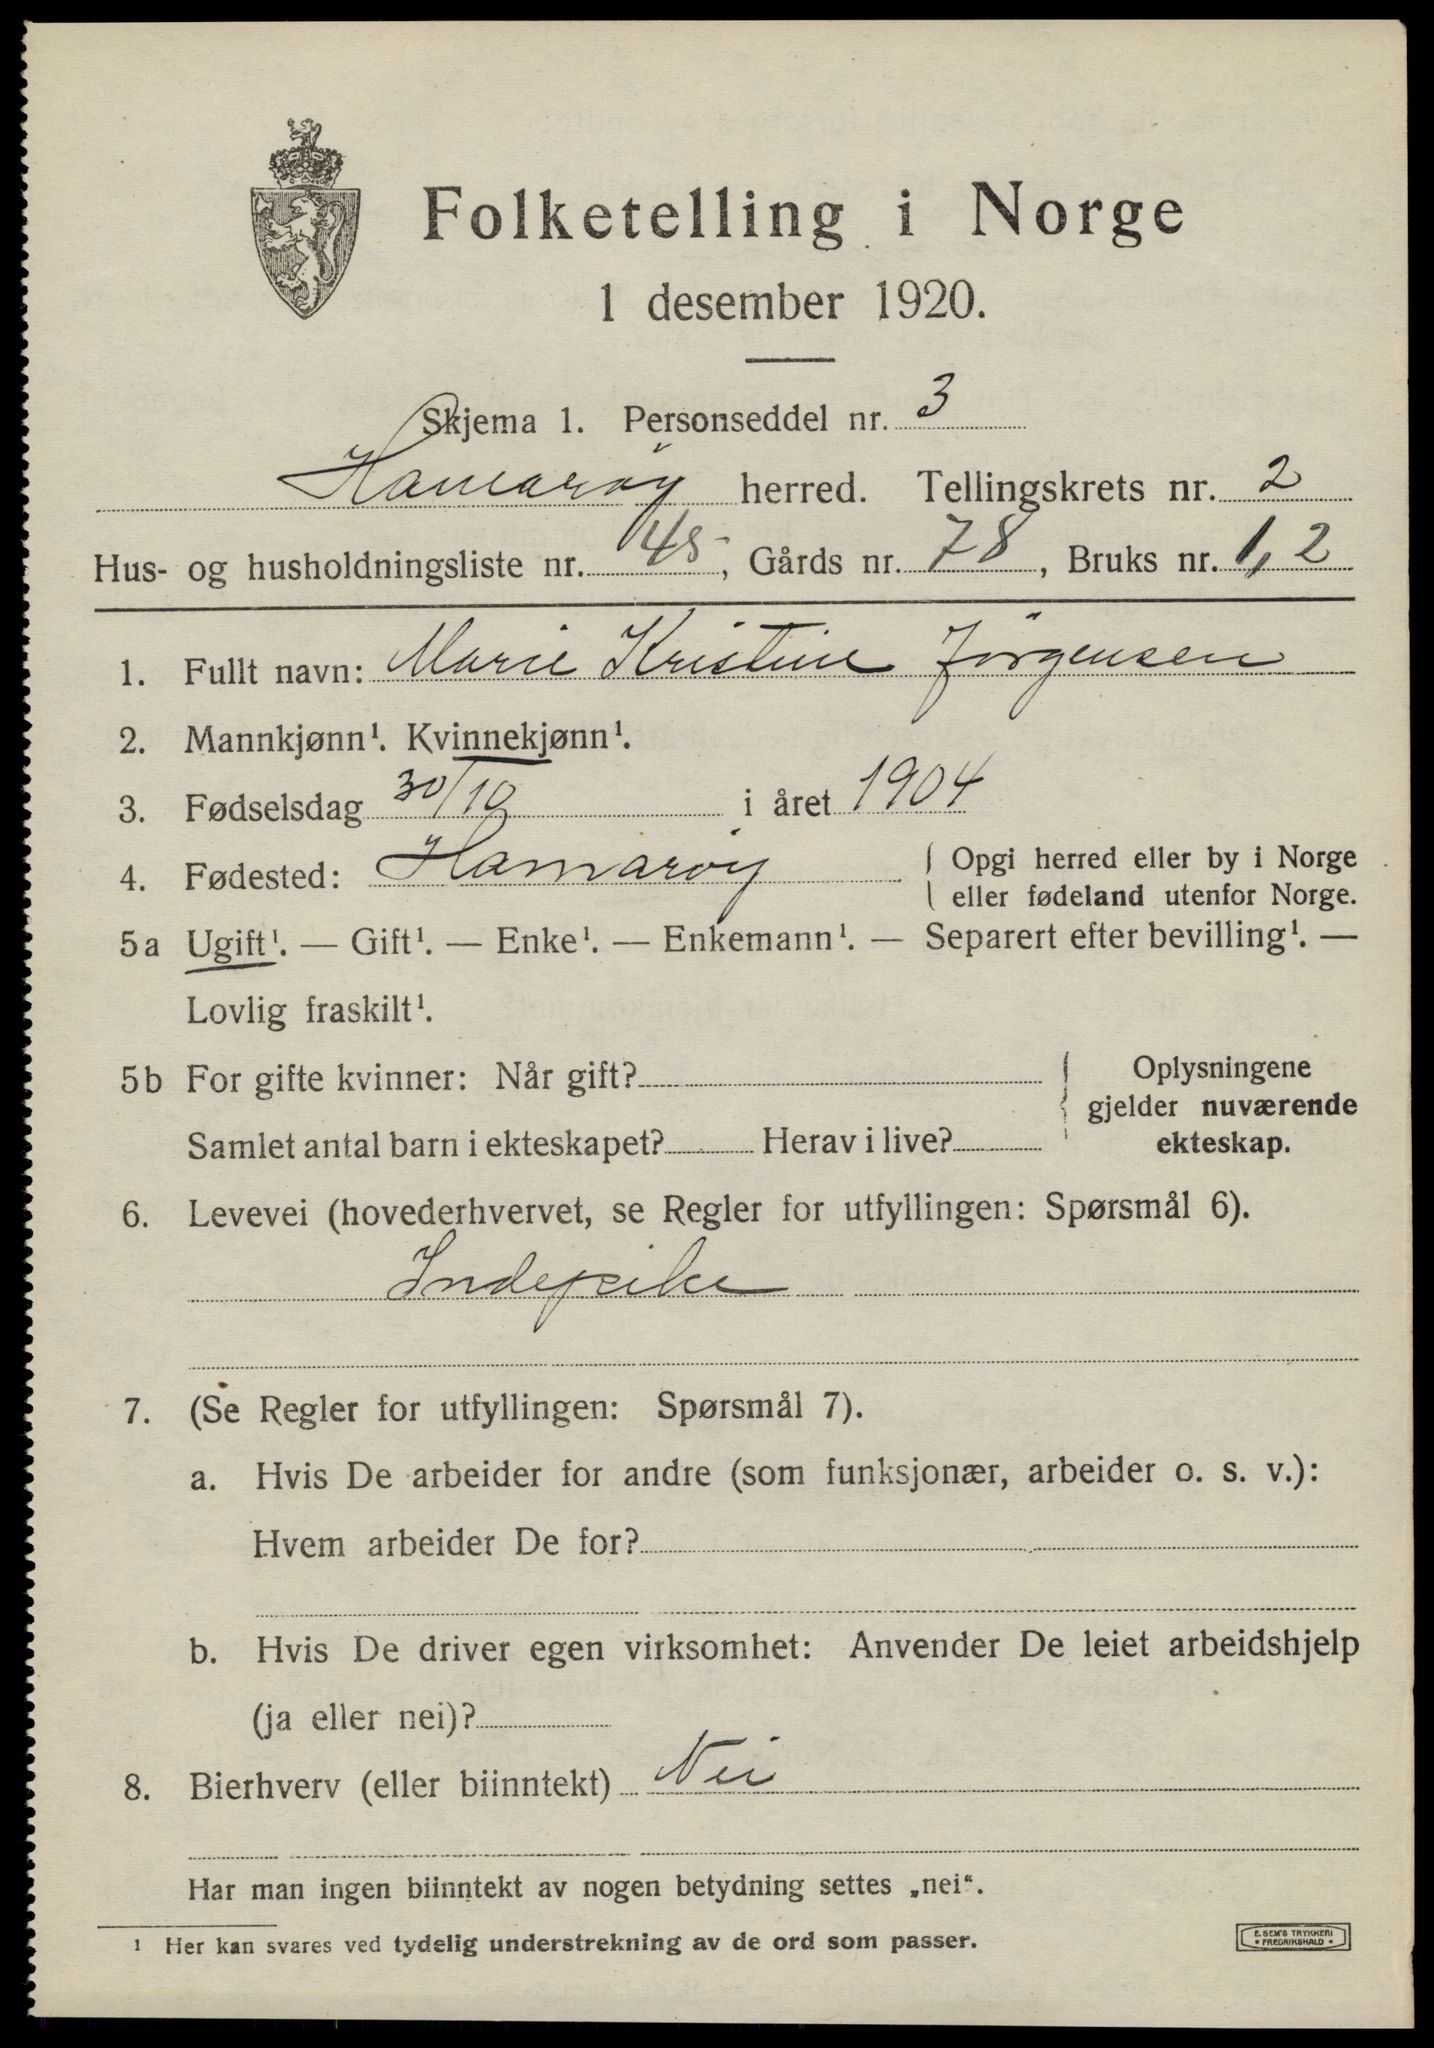 Folketelling i Norge
1 desember 1920.
Skjema 1. Personseddel nr. 3
Hamarøy herred. Tellingskrets nr. 2
Hus- og husholdningsliste nr. 45, Gårds nr. 78, Bruks nr. 1, 2
1. Fullt navn: Marie Kristine Jörgensen
2. Mannkjønn¹. Kvinnekjønn¹.
3. Fødselsdag 30/10 i året 1904
4. Fødested: Hamarøy { Opgi herred eller by i Norge
eller fødeland utenfor Norge.
5a Ugift¹. — Gift¹. — Enke¹. — Enkemann¹. — Separert efter bevilling¹. —
Lovlig fraskilt¹.
5b For gifte kvinner: Når gift?
Samlet antal barn i ekteskapet? Herav i live?
{ Oplysningene
gjelder nuværende
ekteskap.
6. Levevei (hovederhvervet, se Regler for utfyllingen: Spørsmål 6).
Indepike
7. (Se Regler for utfyllingen: Spørsmål 7).
a. Hvis De arbeider for andre (som funksjonær, arbeider o. s. v.):
Hvem arbeider De for?
b. Hvis De driver egen virksomhet: Anvender De leiet arbeidshjelp
(ja eller nei)?
8. Bierhverv (eller biinntekt) Nei
Har man ingen biinntekt av nogen betydning settes „nei“.
¹ Her kan svares ved tydelig understrekning av de ord som passer.
E. SEM'S TRYKKERI
• FREDRIKSHALD •